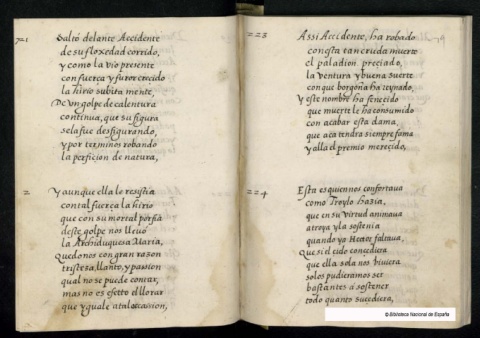 721
Saltó delante Accidente
de su floxedad corrido,
y como la vio presente
con fuerça y furor crecido
la hirio subita mente,
De un golpe de calentura
continua, que su figura
se la fue desfigurando,
y por terminos robando
la perficion de natura,
2
Y aunque ella lo resistia
con tal fuerça la hirio
que con su mortal porfia
deste golpe nos llevó
la Archiduquesa Maria,
Quedonos con gran razon
tristeza, llanto, y passion
qual no se puede contar,
mas no es efetto el llorar
que yguale a tal occasion,
223
Assi Accidente, ha robado
con esta tan cruda muerte
el paladion preciado,
la ventura y buena suerte
con que borgoña ha reynado,
Y este nombre ha fenecido
que muerte le ha consumido
con acabar esta dama,
que aca tendra siempre fama
y alla el premio merecido,
224
Esta es quien nos confortava
como Troylo hazia,
que en su virtud animava
a troya y la sostenia
quando ya Hector faltava,
Que si el cielo concediera
que ella sola nos viviera
solos pudieramos ser
bastantes a sostener
todo quanto sucediera,
© Biblioteca Nacional de España